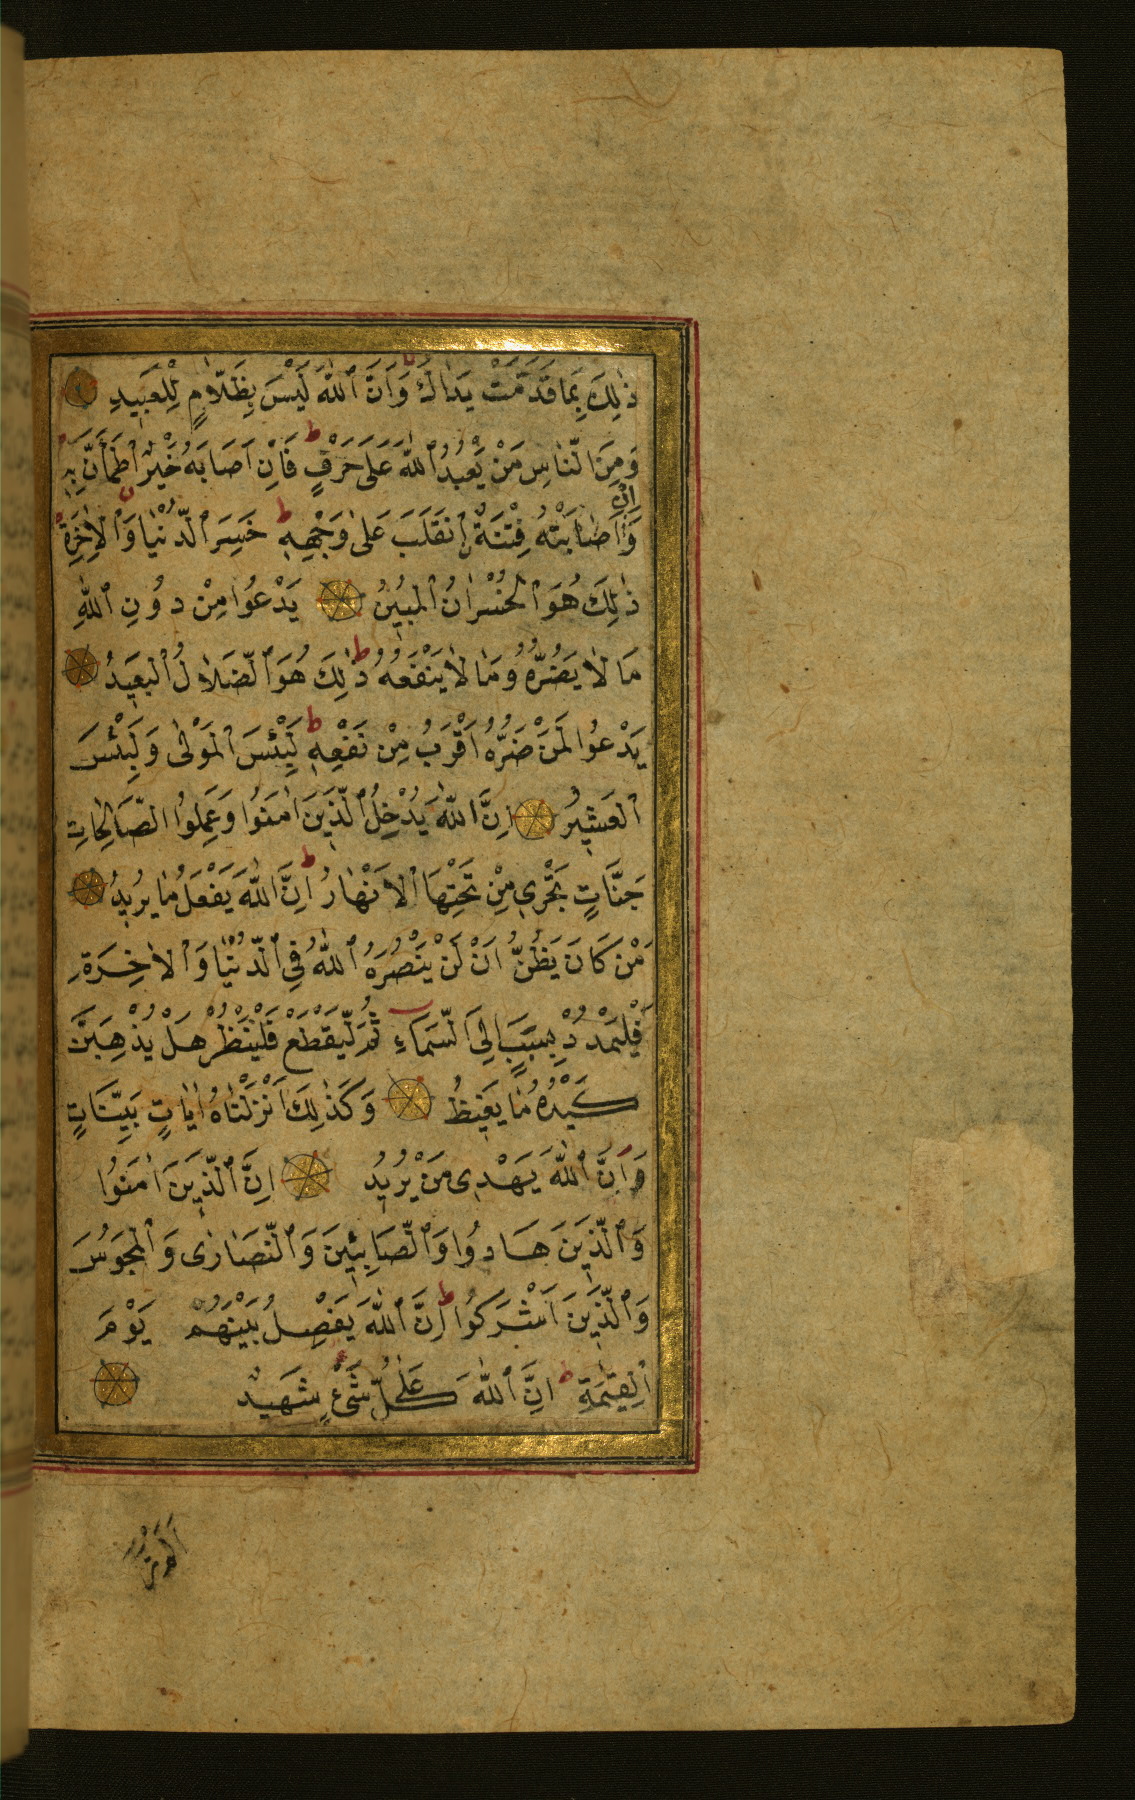 ذٰلِكَ بِمَا قَدَّمَتْ يَدَاكَ وَاَنَّ ٱللّٰهَ لَيْسَ بِظَلَّامٍ لِلْعَبِيدِ
وَمِنَ النَّاسِ مَنْ يَعْبُدُ ٱللّٰهَ عَلَى حَرْفٍ ط فَاِنْ اَصَابَهُ خَيْرٌ ٱطْمَأَنَّ بِهِ
وَاِنْ اَصَابَتْهُ فِتْنَةٌ ٱنْقَلَبَ عَلٰى وَجْهِهِ ط خَسِرَ ٱلدُّنْيَا وَٱلْاٰخِرَةَ
ذٰلِكَ هُوَ ٱلْخُسْرَانُ ٱلْمُبِينُ يَدْعُوا مِنْ دُونِ ٱللّٰهِ
مَا لَا يَضُرُّهُ وَمَا لَا يَنْفَعُهُ ط ذٰلِكَ هُوَ ٱلضَّلَالُ ٱلْبَعِيدُ
يَدْعُوا لَمَنْ ضَرُّهُ اَقْرَبُ مِنْ نَفْعِهِ ط لَبِئْسَ ٱلْمَوْلٰى وَلَبِئْسَ
ٱلْعَشِيرُ اِنَّ ٱللّٰهَ يُدْخِلُ ٱلَّذِينَ اٰمَنُوا وَعَمِلُوا الصَّالِحَاتِ
جَنَّاتٍ تَجْرِي مِنْ تَحْتِهَا ٱلْاَنْهَارُ ط اِنَّ ٱللّٰهَ يَفْعَلُ مَا يُرِيدُ
مَنْ كَانَ يَظُنُّ اَنْ لَنْ يَنْصُرَهُ ٱللّٰهُ فِي ٱلدُّنْيَا وَٱلْاٰخِرَةِ
فَلْيَمْدُدْ بِسَبَبٍ اِلَى ٱلسَّمَاءِ ثُمَّ لْيَقْطَعْ فَلْيَنْظُرْ هَلْ يُذْهِبَنَّ
كَيْدُهُ مَا يَغِيظُ وَكَذٰلِكَ اَنْزَلْنَاهُ اٰيَاتٍ بَيِّنَاتٍ
وَاَنَّ ٱللّٰهَ يَهْدِي مَنْ يُرِيدُ اِنَّ ٱلَّذِينَ اٰمَنُوا
وَٱلَّذِينَ هَادُوا وَٱلصَّابِئِينَ وَٱلنَّصَارٰى وَٱلْمَجُوسَ
وَٱلَّذِينَ اَشْرَكُوا ط اِنَّ ٱللّٰهَ يَفْصِلُ بَيْنَهُمْ يَوْمَ
ٱلْقِيٰمَةِ ط اِنَّ ٱللّٰهَ عَلٰى كُلِّ شَيْءٍ شَهِيدٌ
اَلَمْ تَرَ